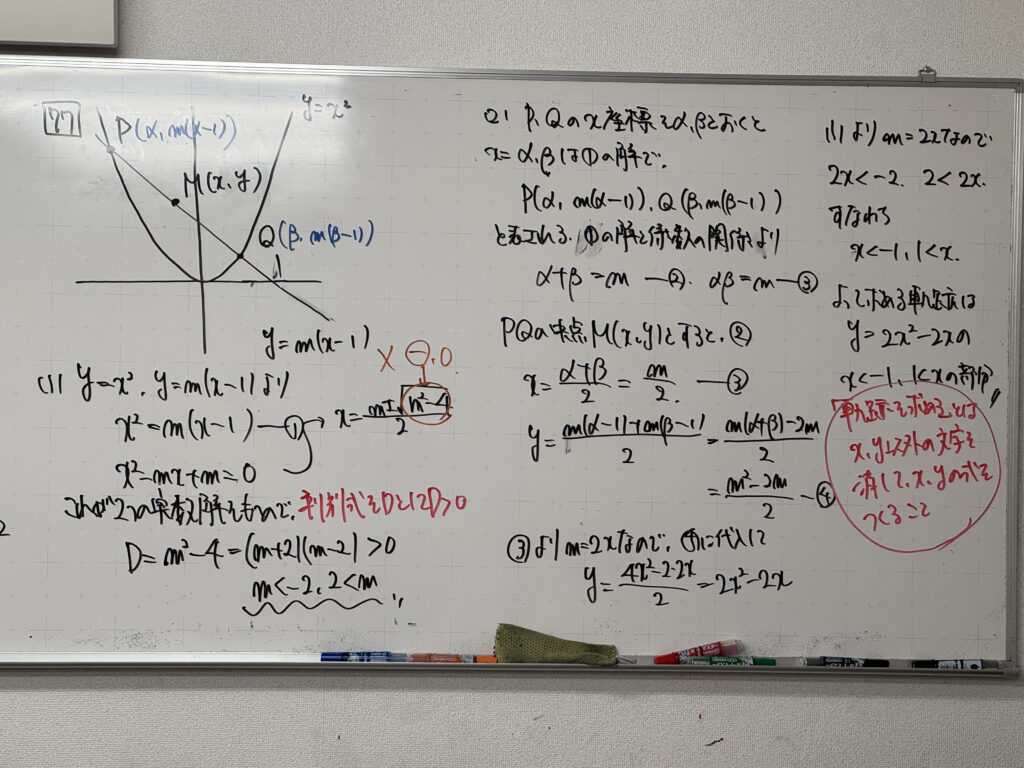 77
y=x²
P(α, m(α-1))
M(x, y)
Q(β, m(β-1))
1
y=m(x-1)
(1) y=x², y=m(x-1)より
x²=m(x-1) ―①
x²-mx+m=0
x=m±√m²-4/2
× ⊖, 0
これが2つの実数解をもつので、判別式をDとしてD>0
D=m²-4=(m+2)(m-2)>0
m<-2, 2<m
2
(2) P, Qのx座標をα, βとおくと
x=α, βは①の解で、
P(α, m(α-1)), Q(β, m(β-1))
と表される。①の解と係数の関係より
α+β=m ―②, αβ=m ―③
PQの中点M(x, y)とすると、②
x=α+β/2=m/2 ―③
y=m(α-1)+m(β-1)/2=m(α+β)-2m/2
=m²-2m/2 ―④
③よりm=2xなので、④に代入して
y=4x²-2・2x/2=2x²-2x
(1)よりm=2xなので
2x<-2, 2<2x.
すなわち
x<-1, 1<x.
よって求める軌跡は
y=2x²-2xの
x<-1, 1<xの部分
「軌跡を求める」とは
x, y以外の文字を
消して、x, yの式を
つくること